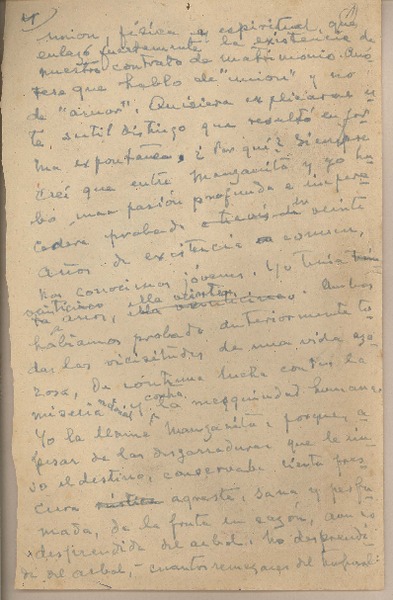 union, física y espiritual, que
enlazó fuertemente la existencia de
nuestro contrato de matrimonio. Anó-
tese que hablo de "union" y no
de "amor". Quisiera explicarme es-
te, sutil distingo que resultó en for-
ma expontánea. ¿Por qué? Siempre
creí que entre Manzanita y yo hu-
bo una pasión profunda e impere-
cedera probada en veinte
años de existencia en común,
Nos conocimos jovenes. Yo tenía
veinticinco años, ella Ambos
habíamos probado anteriormente to-
das las vicisitudes de una vida aza-
rosa, de contínua lucha contra la
miseria y contra la mezquindad humana.
Yo la llamé Manzanita porque, a
pesar de las desgarraduras que le in-
el destino, conservaba cierta fres-
cura rústica agreste, sana y perfu-
mada, de la fruta en sazón, aun no
desprendida del arbol: No desprendi-
da del arbol, cuantos remezones del